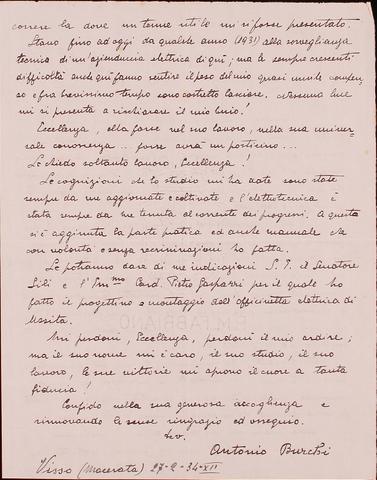 correre là dove un terreno utile mi si fosse presentato.
Stavo fino ad oggi da qualche anno (1931) alla sorveglianza
tecnica di un'azienduccia elettrica di qui; ma le sempre crescenti
difficoltà anche qui fanno sentire il peso del mio quasi inutile compen-
so e fra brevissimo tempo sono costretto lasciare. Nessuna luce
mi si presenta a rischiarare il mio buio!
Eccellenza, ella forse nel suo lavoro, nella sua univer-
sale conoscenza ... forse avrà un posticino...
Le chiedo soltanto lavoro, Eccellenza!
Le cognizioni che lo studio mi ha date sono state
sempre da me aggiornate e coltivate e l'elettrotecnica è
stata sempre da me tenuta al corrente dei progressi. A questa
si è aggiunta la parte pratica ed anche manuale che
con volontà e senza recriminazioni ho fatta.
Le potranno dare di me indicazioni S. E. il Senatore
Sili e l'Em.mo Card. Pietro Gasparri per il quale ho
fatto il progettino e montaggio dell'officinetta elettrica di
Ussita.
Mi perdoni, Eccellenza, perdoni il mio ardire;
ma il suo nome mi è caro, il suo studio, il suo
lavoro, le sue vittorie mi aprono il cuore a tanta
fiducia!
Confido nella sua generosa accoglienza e
rinnovando le scuse ringrazio ed ossequio.
dev.
Antonio Burchi
Visso (Macerata) 27-2-34-XII